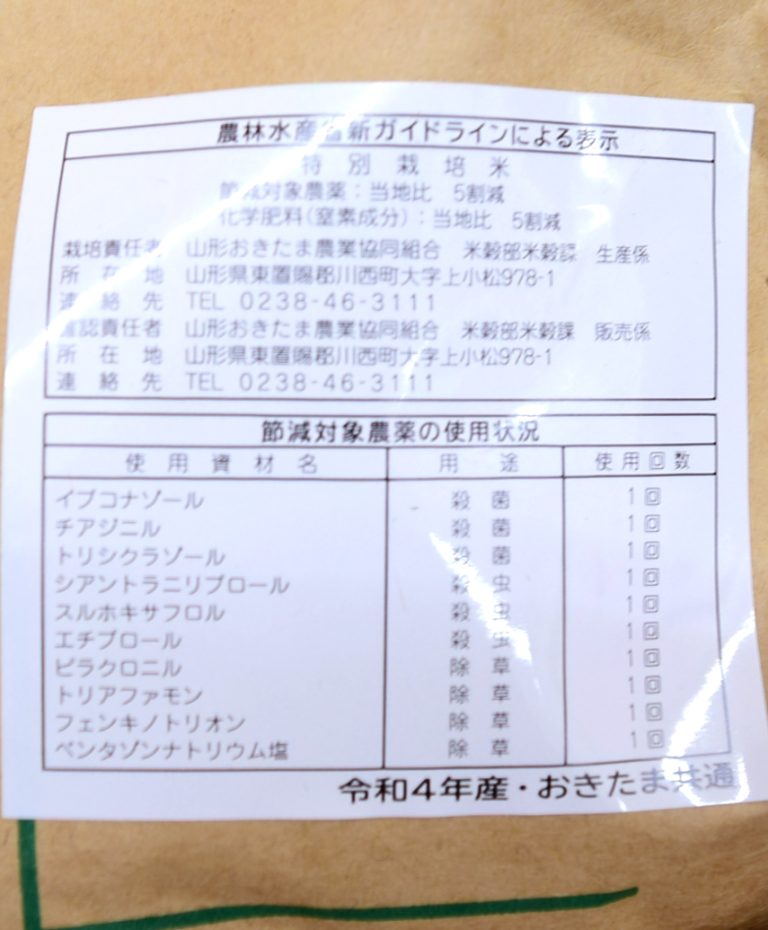 農林水産省新ガイドラインによる表示
特別栽培米
節減対象農薬：当地比 5割減
化学肥料(窒素成分)：当地比 5割減
栽培責任者 山形おきたま農業協同組合 米穀部米穀課 生産係
所在地 山形県東置賜郡川西町大字上小松978-1
連絡先 TEL 0238-46-3111
確認責任者 山形おきたま農業協同組合 米穀部米穀課 販売係
所在地 山形県東置賜郡川西町大字上小松978-1
連絡先 TEL 0238-46-3111
節減対象農薬の使用状況
使用資材名 用途 使用回数
イプコナゾール 殺菌 1回
チアジニル 殺菌 1回
トリシクラゾール 殺菌 1回
シアントラニリプロール 殺虫 1回
スルホキサフロル 殺虫 1回
エチプロール 殺虫 1回
ピラクロニル 除草 1回
トリアファモン 除草 1回
フェンキノトリオン 除草 1回
ベンタゾンナトリウム塩 除草 1回
令和4年産・おきたま共通